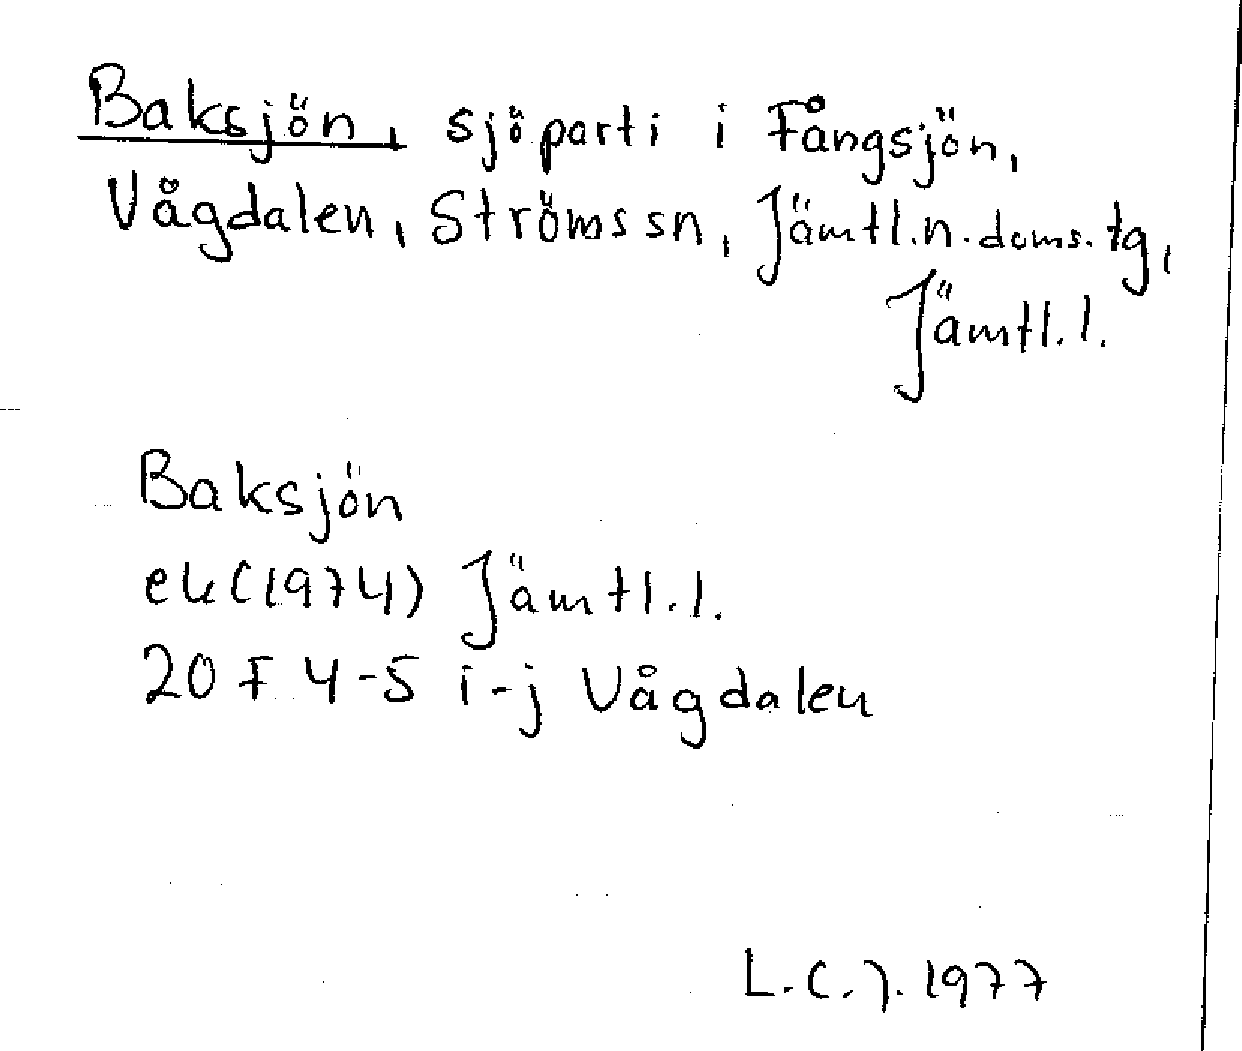 Baksjön, sjöparti i Fångsjön,
Vågdalen, Ströms sn, Jämtl.n.doms.tg,
Jämtl.l.
Baksjön
ek(1974) Jämtl.l.
20 F 4-5 i-j Vågdalen
L.C.J. 1977